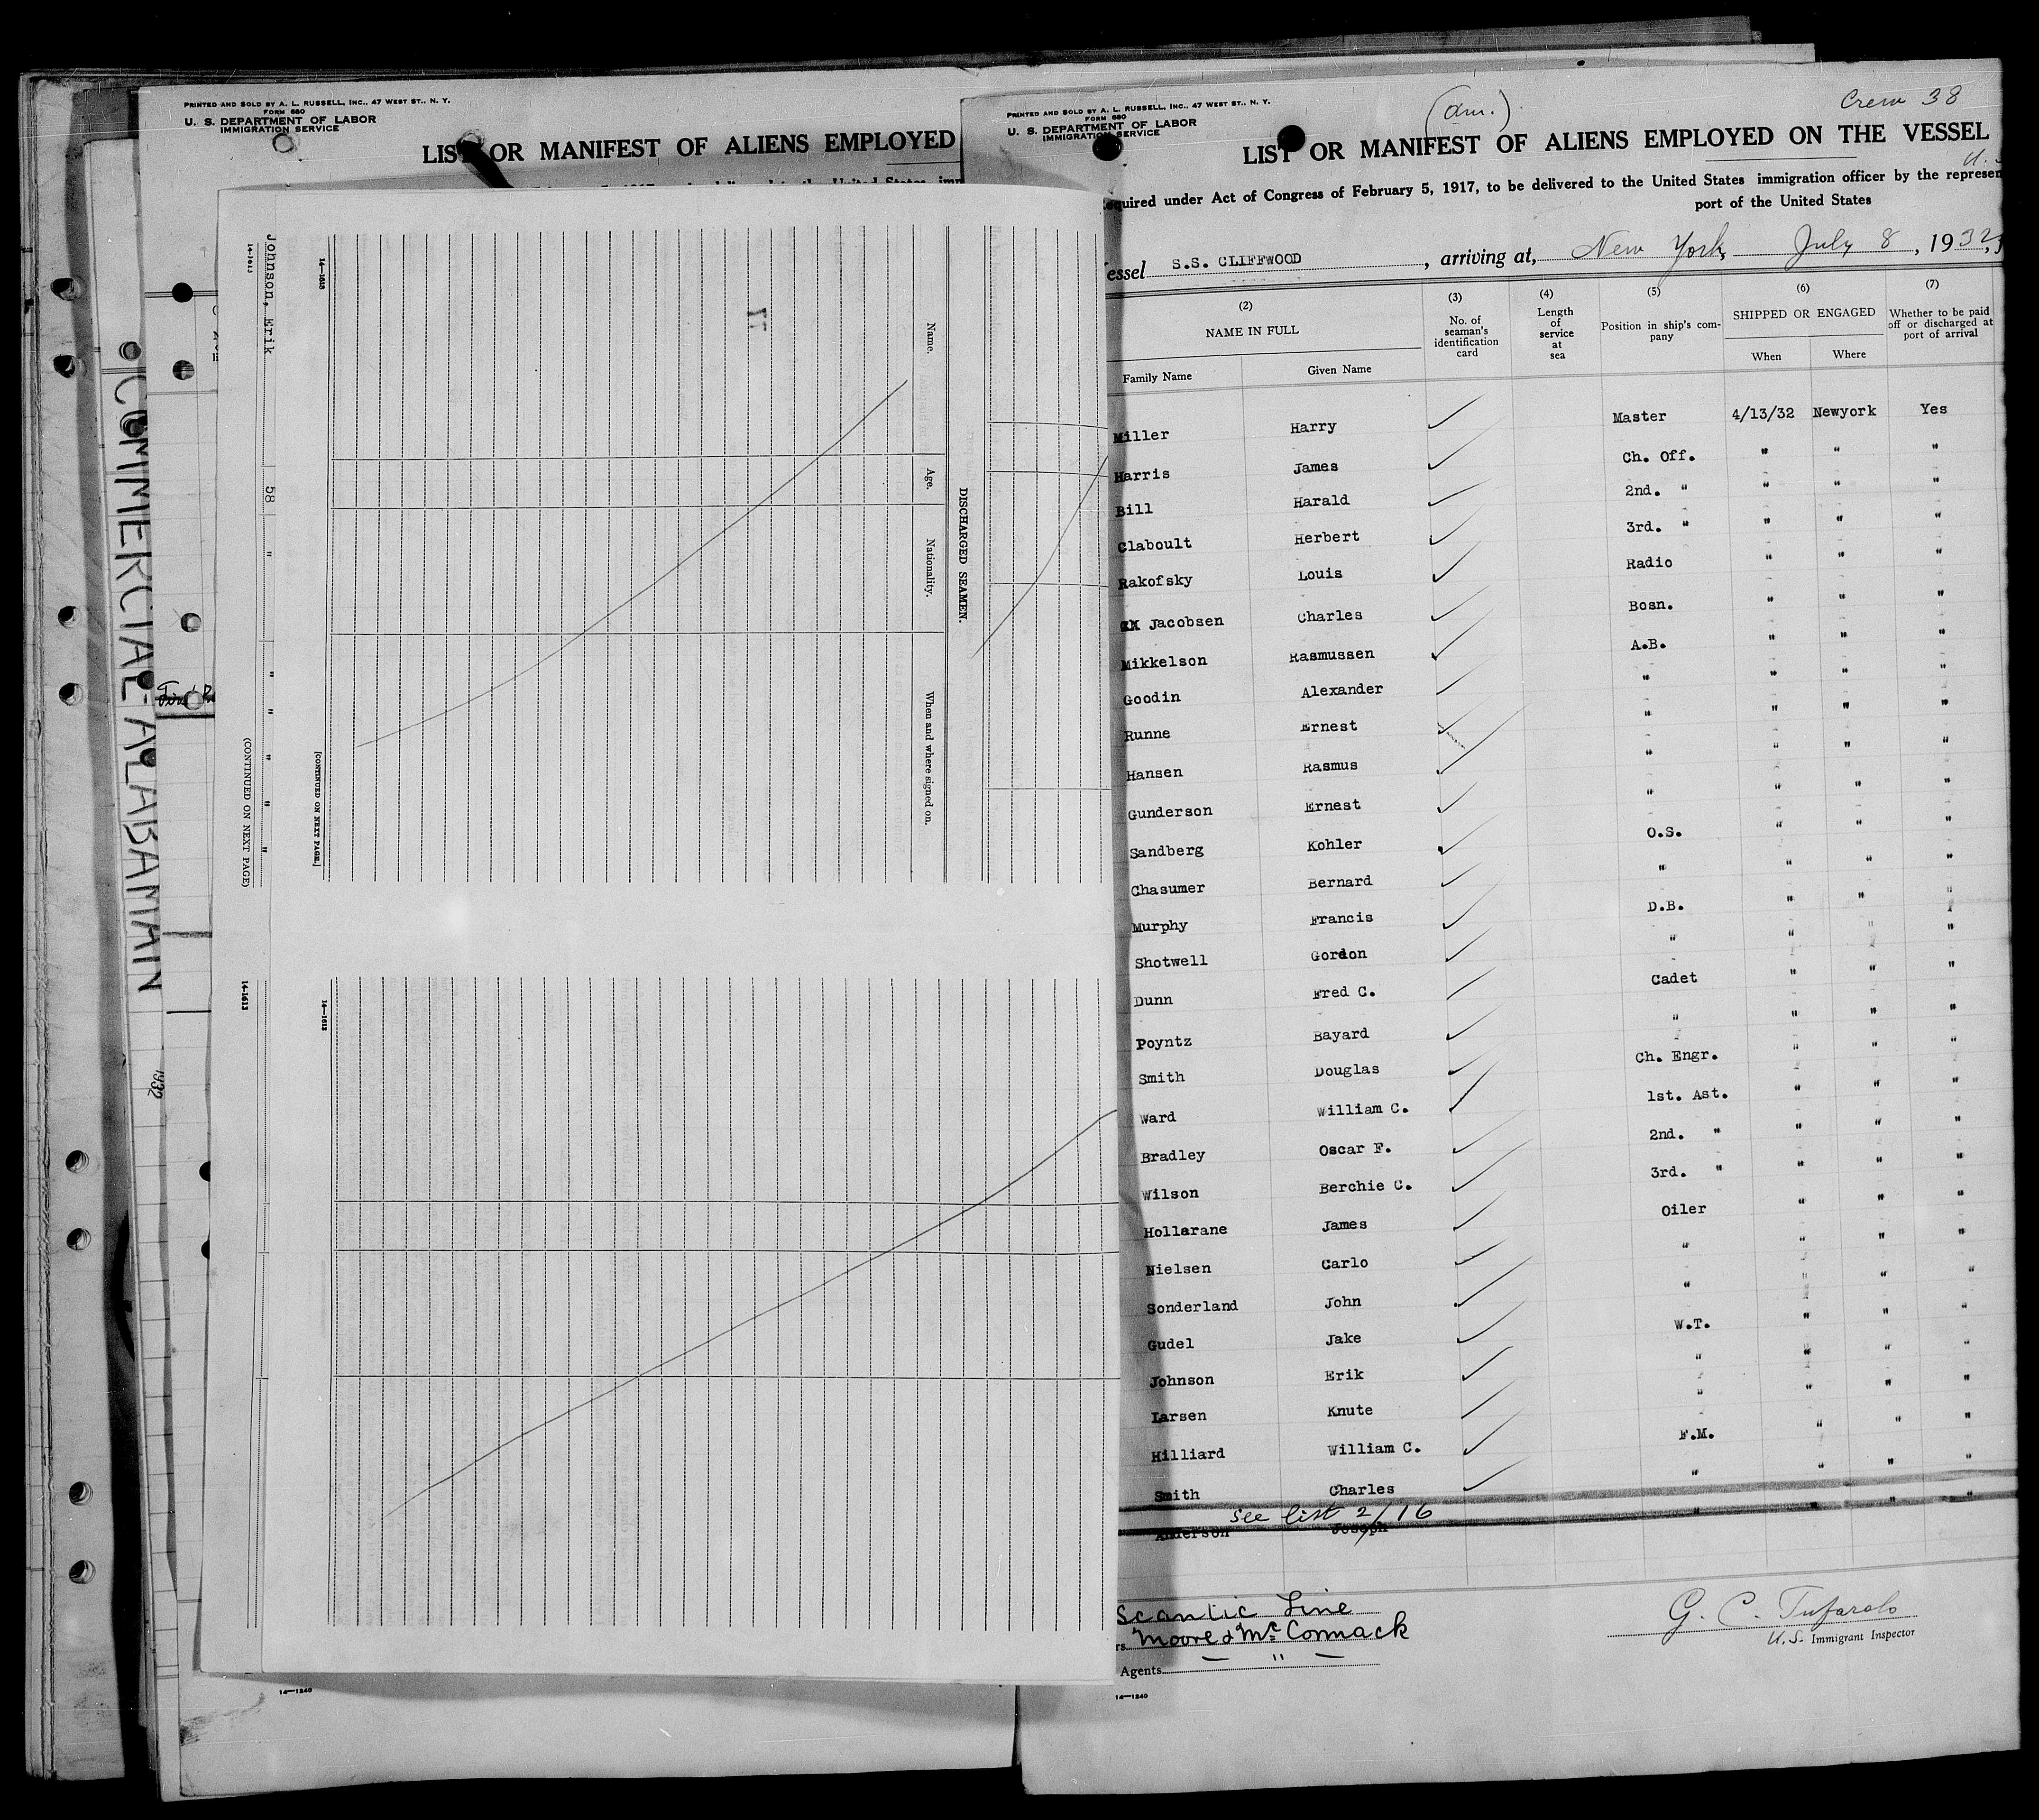 COMMERCIAL ALABAMAN
1932
PRINTED AND SOLD BY A. L. RUSSELL, INC., 47 WEST ST., N. Y.
FORM 680
U. S. DEPARTMENT OF LABOR
IMMIGRATION SERVICE
LIST OR MANIFEST OF ALIENS EMPLOYED
DISCHARGED SEAMEN.
Name. Age. Nationality. When and where signed on.
[CONTINUED ON NEXT PAGE.]
14—1613
14—1613
Johnson, Erik 58 " " " " " "
14-1613
(CONTINUED ON NEXT PAGE)
14-1613
14—1240
PRINTED AND SOLD BY A. L. RUSSELL, INC., 47 WEST ST., N. Y.
FORM 680
U. S. DEPARTMENT OF LABOR
IMMIGRATION SERVICE
(am.)
Crew 38
LIST OR MANIFEST OF ALIENS EMPLOYED ON THE VESSEL
quired under Act of Congress of February 5, 1917, to be delivered to the United States immigration officer by the represen
port of the United States
essel S.S. CLIFFWOOD, arriving at, New York, July 8, 1932,
(2) (3) (4) (5) (6) (7)
NAME IN FULL No. of seaman's identification card Length of service at sea Position in ship's company SHIPPED OR ENGAGED Whether to be paid off or discharged at port of arrival
Family Name Given Name When Where
Miller Harry Master 4/13/32 Newyork Yes
Harris James Ch. Off. " " "
Bill Harald 2nd. " " " "
Claboult Herbert 3rd. " " " "
Rakofsky Louis Radio " " "
Jacobsen Charles Bosn. " " "
Mikkelson Rasmussen A.B. " " "
Goodin Alexander " " " "
Runne Ernest " " " "
Hansen Rasmus " " " "
Gunderson Ernest " " " "
Sandberg Kohler O.S. " " "
Chasumer Bernard " " " "
Murphy Francis D.B. " " "
Shotwell Gordon " " " "
Dunn Fred C. Cadet " " "
Poyntz Bayard " " " "
Smith Douglas Ch. Engr. " " "
Ward William C. 1st. Ast. " " "
Bradley Oscar F. 2nd. " " " "
Wilson Berchie C. 3rd. " " " "
Hollarane James Oiler " " "
Nielsen Carlo " " " "
Sonderland John " " " "
Gudel Jake W.T. " " "
Johnson Erik " " " "
Larsen Knute " " " "
Hilliard William C. F.M. " " "
Smith Charles " " " "
See list 2/16
Anderson Joseph " " " "
Scantic Line
Moore & McCormack
Agents — " —
G. C. Tufarolo
U.S. Immigrant Inspector
14—1240